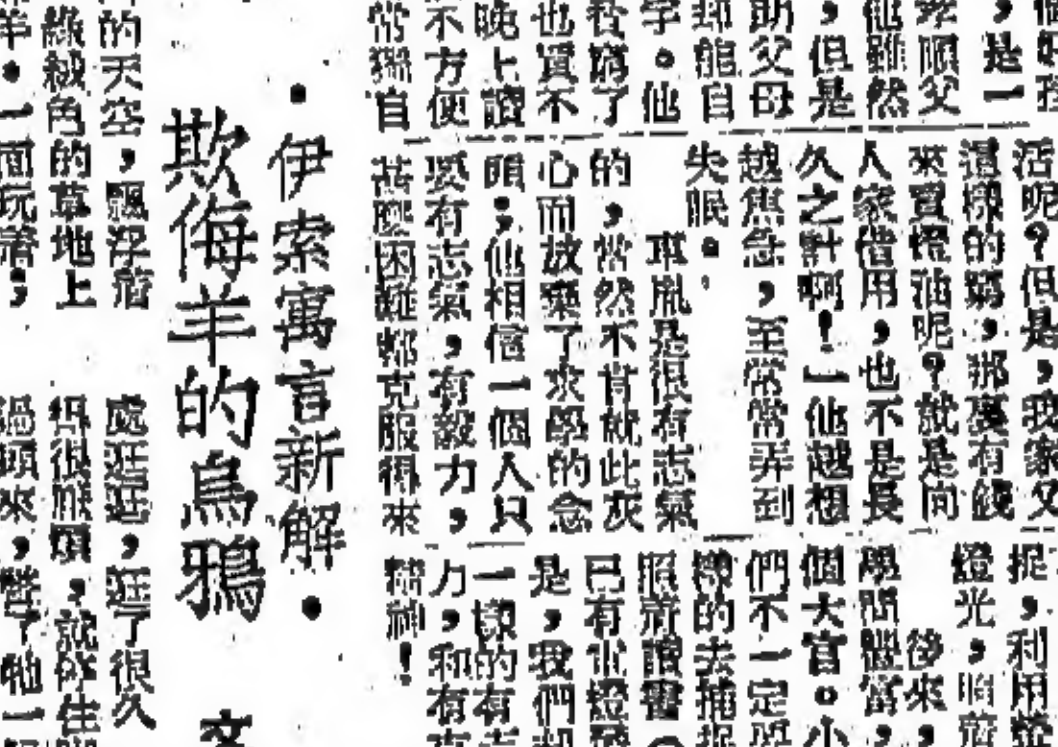 ，是一
孝順父
他雖然
，但是
助父母
自
字。他
窮了
也買不
晚上讀
不方便
常獨自
活呢？但是，我家父
這樣的窮，那裏有錢
來買燈油呢？就是向
人家借用，也不是長
久之計啊！」他越想
越焦急，至常常弄到
失眠。
車胤是很有志氣
的，當然不肯就此灰
心而放棄了求學的念
頭；他相信一個人只
要有志氣，有毅力，
甚麼困難都克服得來
捉，利用
燈光，照着
後來，
學問豐富，
個大官。小
們不一定
樣的去捕捉
照着讀書
已有電燈
是，我們
一樣的有志
力，和有
精神！
•伊索寓言新解•
欺侮羊的烏鴉
的天空，飄浮着
綠絨色的草地上
羊。一面玩着，
處逛逛，逛了很久
得很厭煩，就
過頭來，瞥了牠一